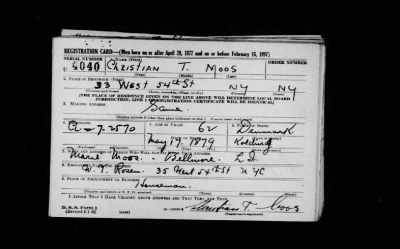 REGISTRATION CARD—(Men born on or after April 28, 1877 and on or before February 16, 1897)
SERIAL NUMBER 1. NAME (Print) ORDER NUMBER
U 4040 CHRISTIAN T. MOOS
(First) (Middle) (Last)
2. PLACE OF RESIDENCE (Print)
33 WEST 54th ST NY NY
(Number and street) (Town, township, village, or city) (County) (State)
[THE PLACE OF RESIDENCE GIVEN ON THE LINE ABOVE WILL DETERMINE LOCAL BOARD
JURISDICTION; LINE 2 OF REGISTRATION CERTIFICATE WILL BE IDENTICAL]
3. MAILING ADDRESS
Same
[Mailing address if other than place indicated on line 2. If same insert word same]
4. TELEPHONE 5. AGE IN YEARS 6. PLACE OF BIRTH
2570 62 Denmark
DATE OF BIRTH
May 19 1879 Kolding
7. NAME AND ADDRESS OF PERSON WHO WILL ALWAYS KNOW YOUR ADDRESS
Marie Moos - Bellmore L I
8. EMPLOYER'S NAME AND ADDRESS
W. T. Rosen 35 West 54th St N.Y.C
9. PLACE OF EMPLOYMENT OR BUSINESS
Houseman
I AFFIRM THAT I HAVE VERIFIED ABOVE ANSWERS AND THAT THEY ARE TRUE.
D.S.S. Form 1
Christian T. Moos